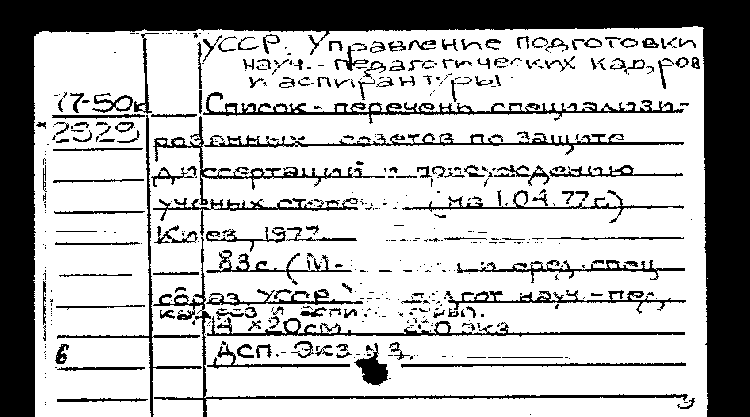 УССР. Управление подготовки
науч.-педагогических кадров
и аспирантуры
77-50к Список-перечень специализи-
2929 рованных советов по защите
диссертаций и присуждению
ученых степе (на 1.04.77г.)
Киев, 1977
83с. (М- и сред. спец
образ. УССР. подгот науч.-пед.
кадров и
14 х 20см. 200 экз
6 Дсп. Экз N 3.